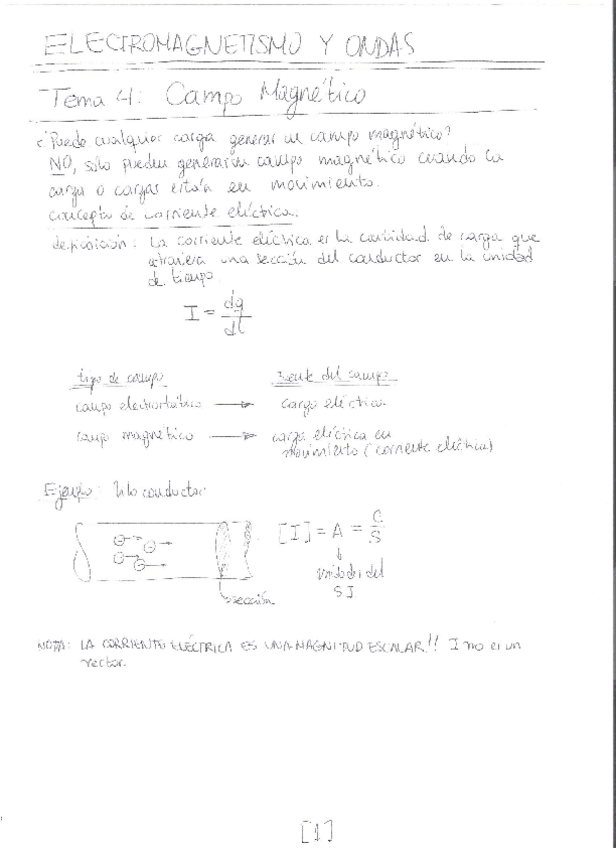 ELECTROMAGNETISMO Y ONDAS
Tema 4: Campo Magnético
¿Puede cualquier carga generar un campo magnético?
NO, sólo pueden generar un campo magnético cuando la
carga o cargas están en movimiento.
Concepto de corriente eléctrica.
definición: La corriente eléctrica es la cantidad de carga que
atraviesa una sección del conductor en la unidad
de tiempo
I = dq/dt
tipo de campo Fuente del campo
campo electrostático → carga eléctrica
campo magnético → carga eléctrica en
movimiento (corriente eléctrica)
Ejemplo: Hilo conductor
[I] = A = C/S
unidades del
SI
sección
NOTA: LA CORRIENTE ELÉCTRICA ES UNA MAGNITUD ESCALAR!! I no es un
vector.
[1]